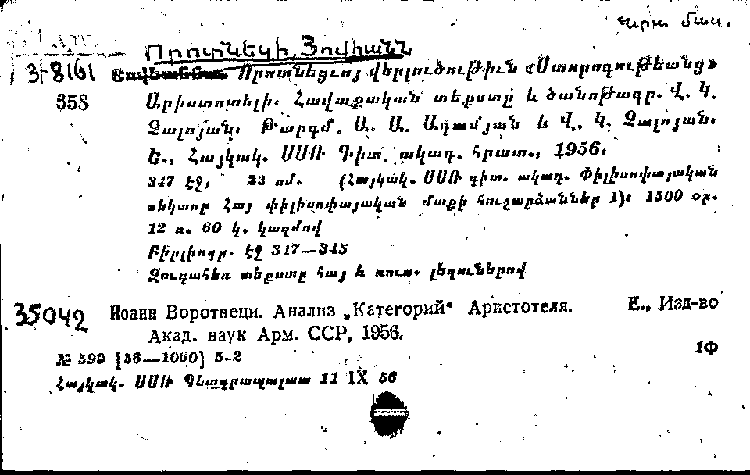 Որոտնեկի Յովհանն
3-8161 Որոտնեցւոյ վերլուծութիւն «Ստորոգութեանց»
358 Արիստոտելի։ Հավաքական տեքստը և ծանոթագր. Վ. Կ.
Չալոյան։ Թարգմ. Ա. Ա. Ադամյան և Վ. Կ. Չալոյան։
Ե., Հայկակ. ՍՍՌ Գիտ. ակադ. հրատ., 1956։
347 էջ, 23 սմ. (Հայկակ. ՍՍՌ գիտ. ակադ. Փիլիսոփայական
սեկտոր Հայ փիլիսոփայական մտքի հուշարձաններ 1)։ 1500 օր.
12 ռ. 60 կ. կազմով
Բիբլիոգր. էջ 317—345
Զուգահեռ տեքստը հայ և ռուս. լեզուներով
35042 Иоанн Воротнеци. Анализ „Категорий“ Аристотеля. Е., Изд-во
Акад. наук Арм. ССР, 1956.
1Ф
№ 399 [56—1060] 5-2
Հայկակ. ՍՍՌ Գևագրապալատ 11 IX 56